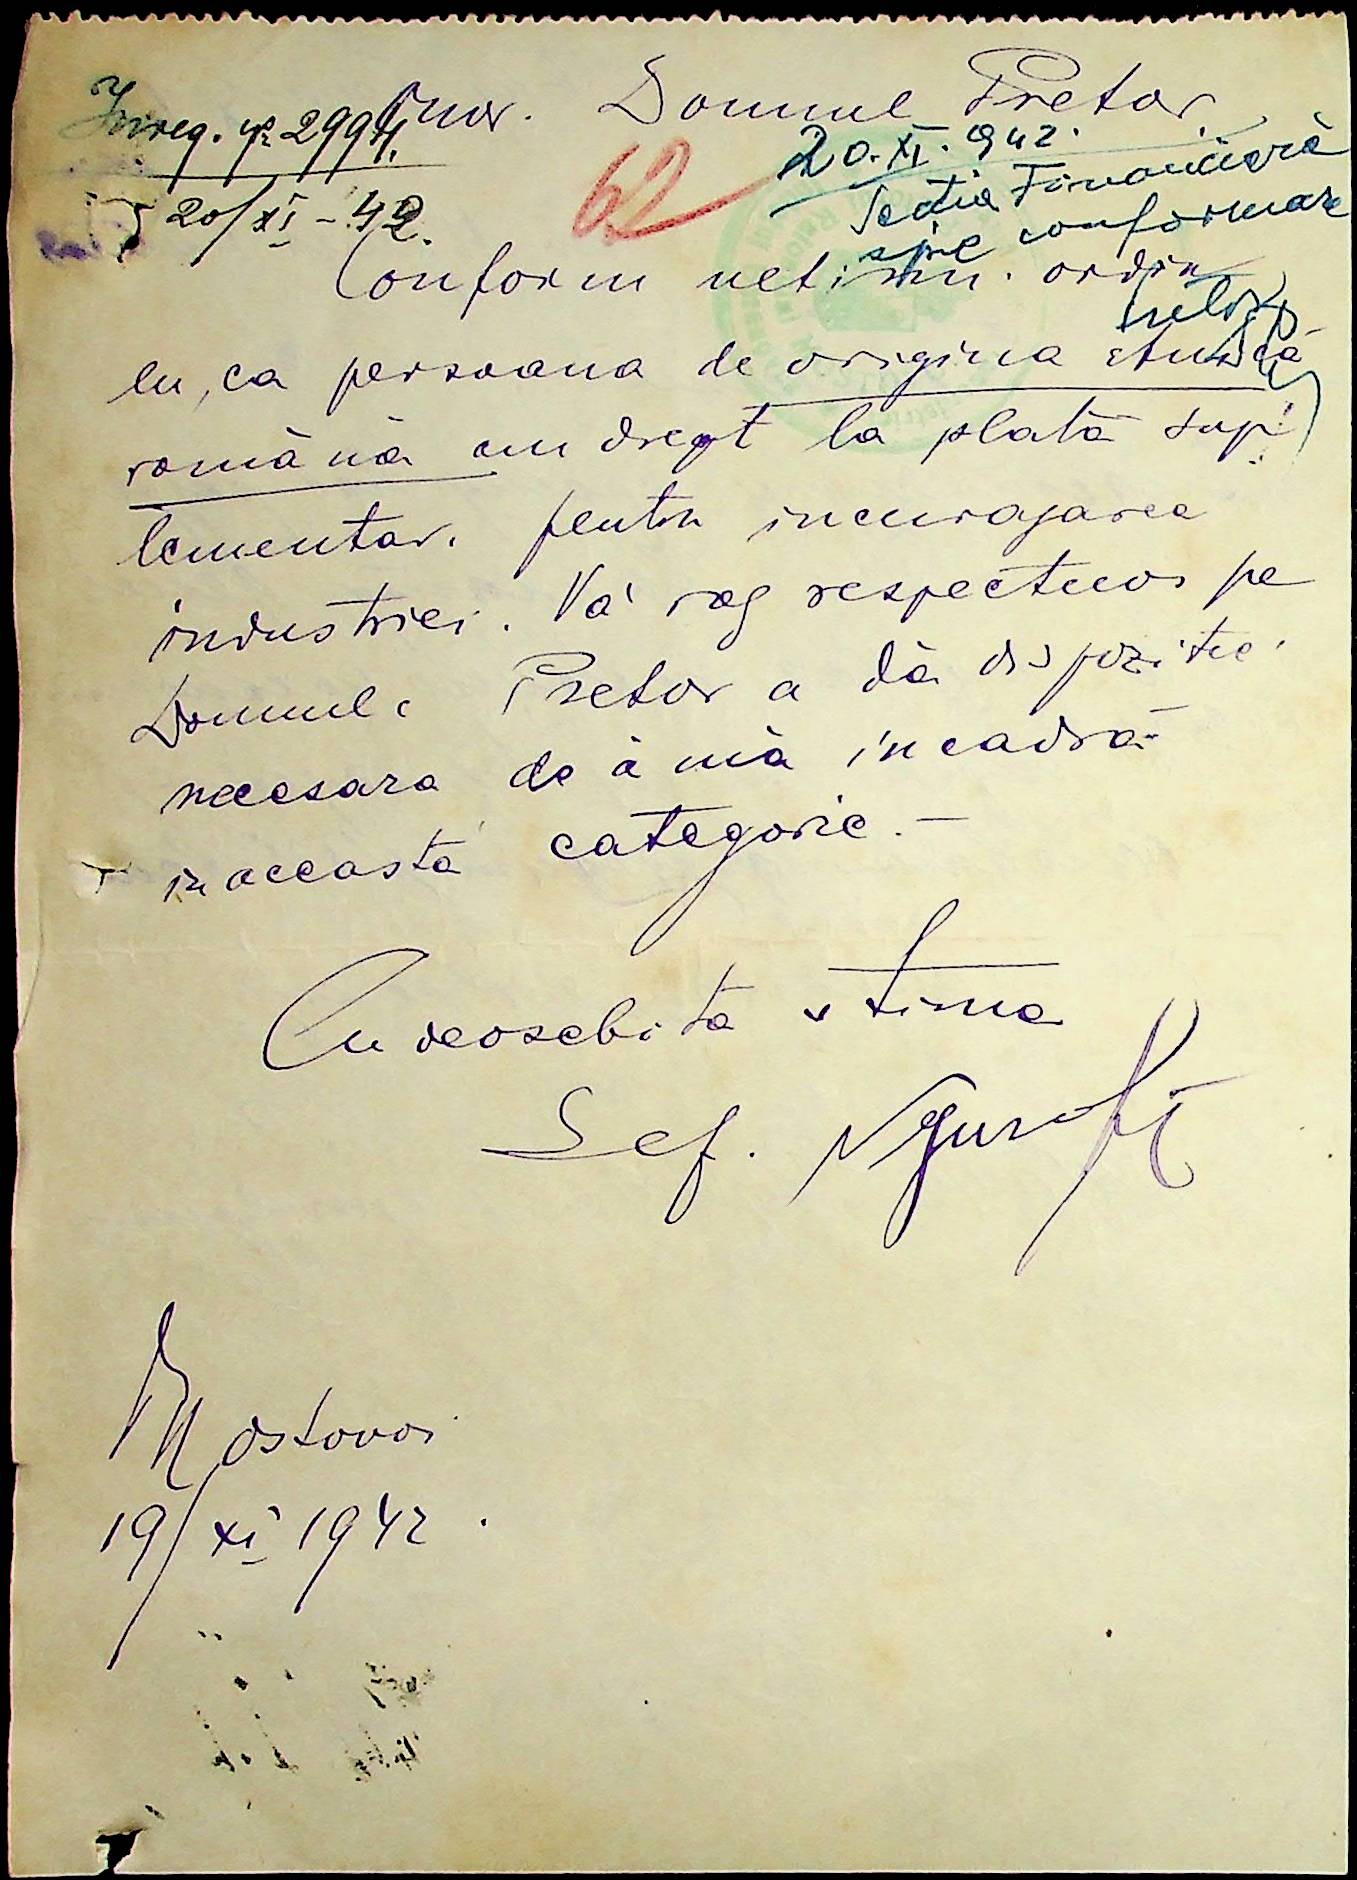 Inreg. № 2994.
20/XI - 42.
Domnul Pretor
62
20.XI.942.
Sectia Financiară
spre conformare
Conform ordin
eu, ca persoana de origina etnică
română am drept la plată sup
lementar. pentru incurajarea
industriei. Vă rog respectuos pe
Domnul Pretor a dă dispozitie
necesara de a mă incadră
in aceasta categorie. —
Cu deosebita stima
Sef.
Mostovoi
19/XI 1942.